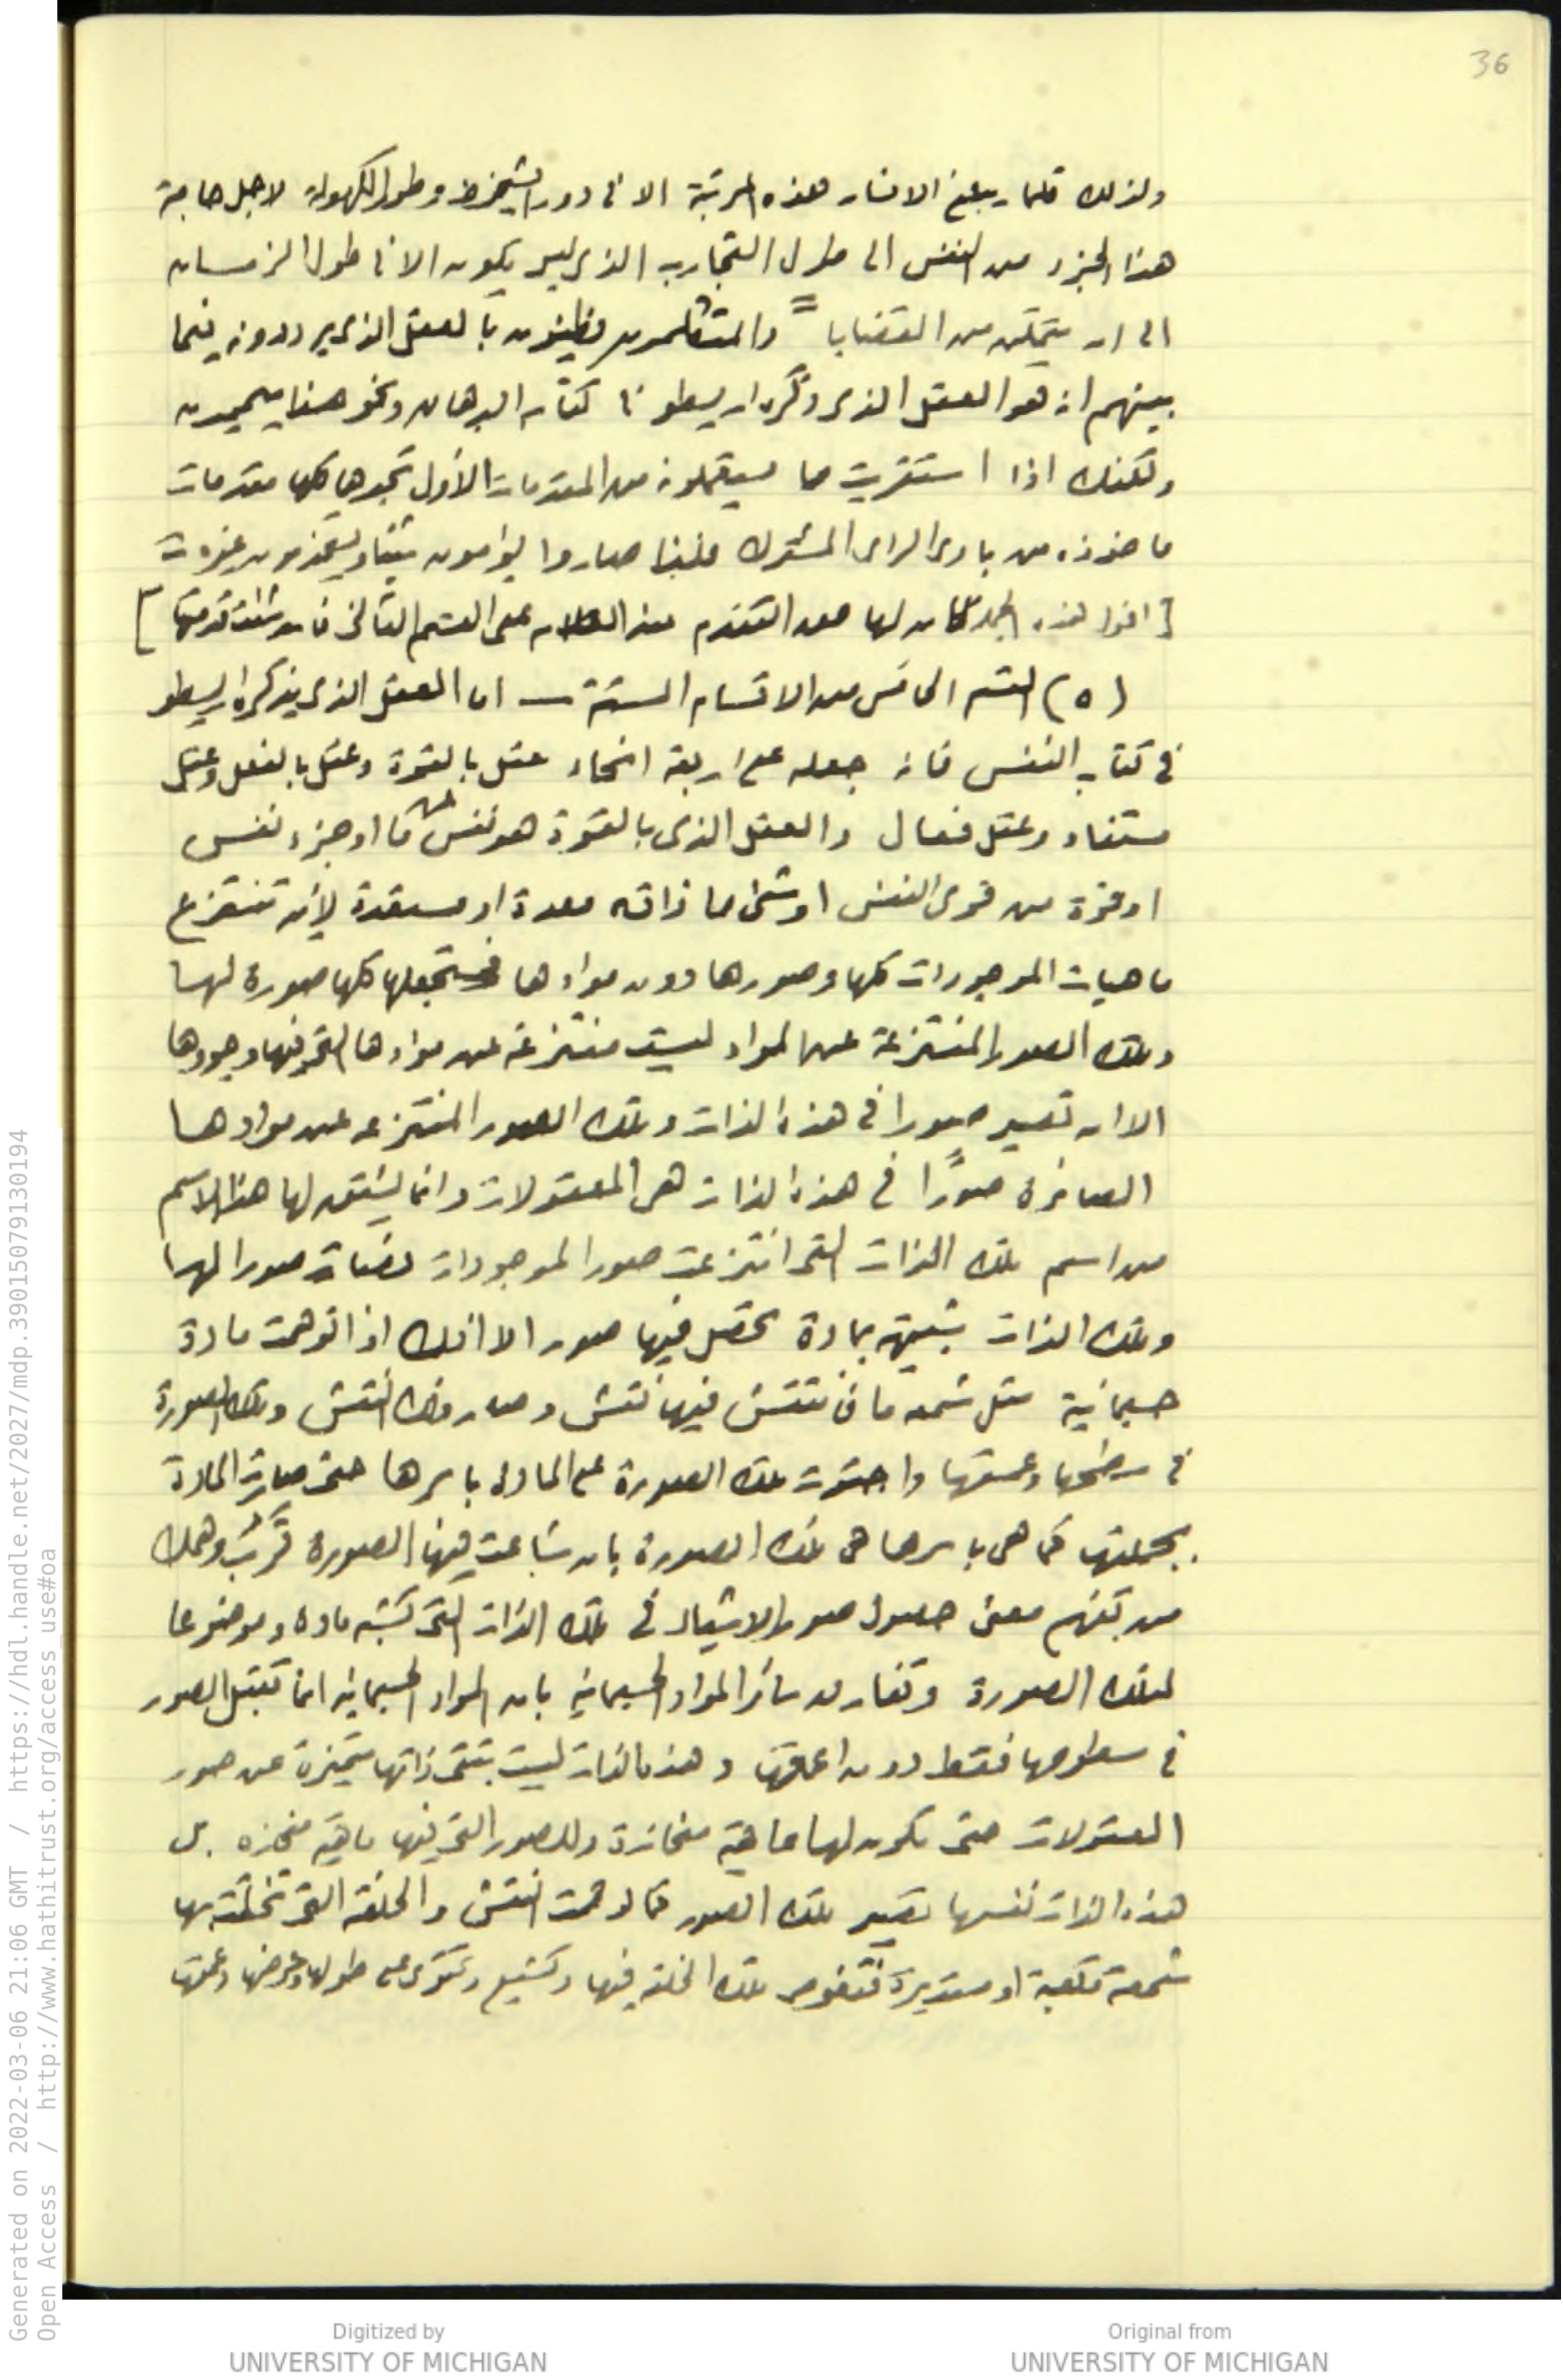 36
ولذلك قلما يبلغ الانسان هذه المرتبة الا فى دور الشيخوخة وطور الكهولة لاجل حاجة
هذا الجزء من النفس الى طول التجارب الذى ليس يكون الا فى طول الزمان
الى ان يتمكن من القضايا = والمتكلمون يظنون بالعقل الذى يرددونه فيما
بينهم انه هو العقل الذى ذكره ارسطو فى كتاب البرهان ونحو هذا يعمدون
ولكنك اذا استقريت ما يستعملونه من المقدمات الأول تجدها كلها مقدمات
ماخوذة من بادى الراى المشترك فلهذا صاروا يؤمون شيئا ويستخدمون غيره
[ اقول هذه الجملة كان لها حق التقدم عند الكلام على القسم الثانى فان شئت قدمتها ]
(٥) القسم الخامس من الاقسام الستة — اما العقل الذى يذكره ارسطو
فى كتاب النفس فانه جعله على اربعة انحاء عقل بالقوة وعقل بالفعل وعقل
مستفاد وعقل فعال والعقل الذى بالقوة هو نفس ما او جزء نفس
او قوة من قوى النفس او شئ ما ذاته معدة او مستعدة لأن تنتزع
ماهيات الموجودات كلها وصورها دون موادها فتجعلها كلها صورة لها
وتلك الصور المنتزعة عن المواد ليست منتزعة عن موادها التى فيها وجودها
الا ان تصير صورا فى هذه الذات وتلك الصور المنتزعه عن موادها
الصائرة صورًا فى هذه الذات هى المعقولات وانما يشتق لها هذا الاسم
من اسم تلك الذات التى انتزعت صور الموجودات فصارت صورا لها
وتلك الذات شبيهة بمادة تحصل فيها صور الا انك اذا توهمت مادة
جسمانية مثل شمعه ما فانتقش فيها نقش وصار ذلك النقش وتلك الصورة
فى سطحها وعمقها واحتوت تلك الصورة على المادة باسرها حتى صارت المادة
بجملتها كما هى باسرها هى تلك الصورة بان شاعت فيها الصورة قرب وهمك
من تفهم معنى حصول صور الاشياء فى تلك الذات التى تشبه مادة وموضوعا
لتلك الصورة وتفارق سائر المواد الجسمانية بان المواد الجسمانية انما تقبل الصور
فى سطوحها فقط دون اعماقها وهذه الذات ليست تبقى ذاتها متميزة عن صور
المعقولات حتى يكون لها ماهية منحازة وللصور التى فيها ماهية منحازه بل
هذه الذات نفسها تصير تلك الصور كما لو توهمت النقش والخلقة التى تخلقت بها
شمعة مكعبة او مستديرة فتغوص تلك الخلقة فيها وتشيع وتحتوى على طولها وعرضها وعمقها
Generated on 2022-03-06 21:06 GMT / https://hdl.handle.net/2027/mdp.39015079130194
Open Access / http://www.hathitrust.org/access_use#oa
Digitized by
UNIVERSITY OF MICHIGAN
Original from
UNIVERSITY OF MICHIGAN